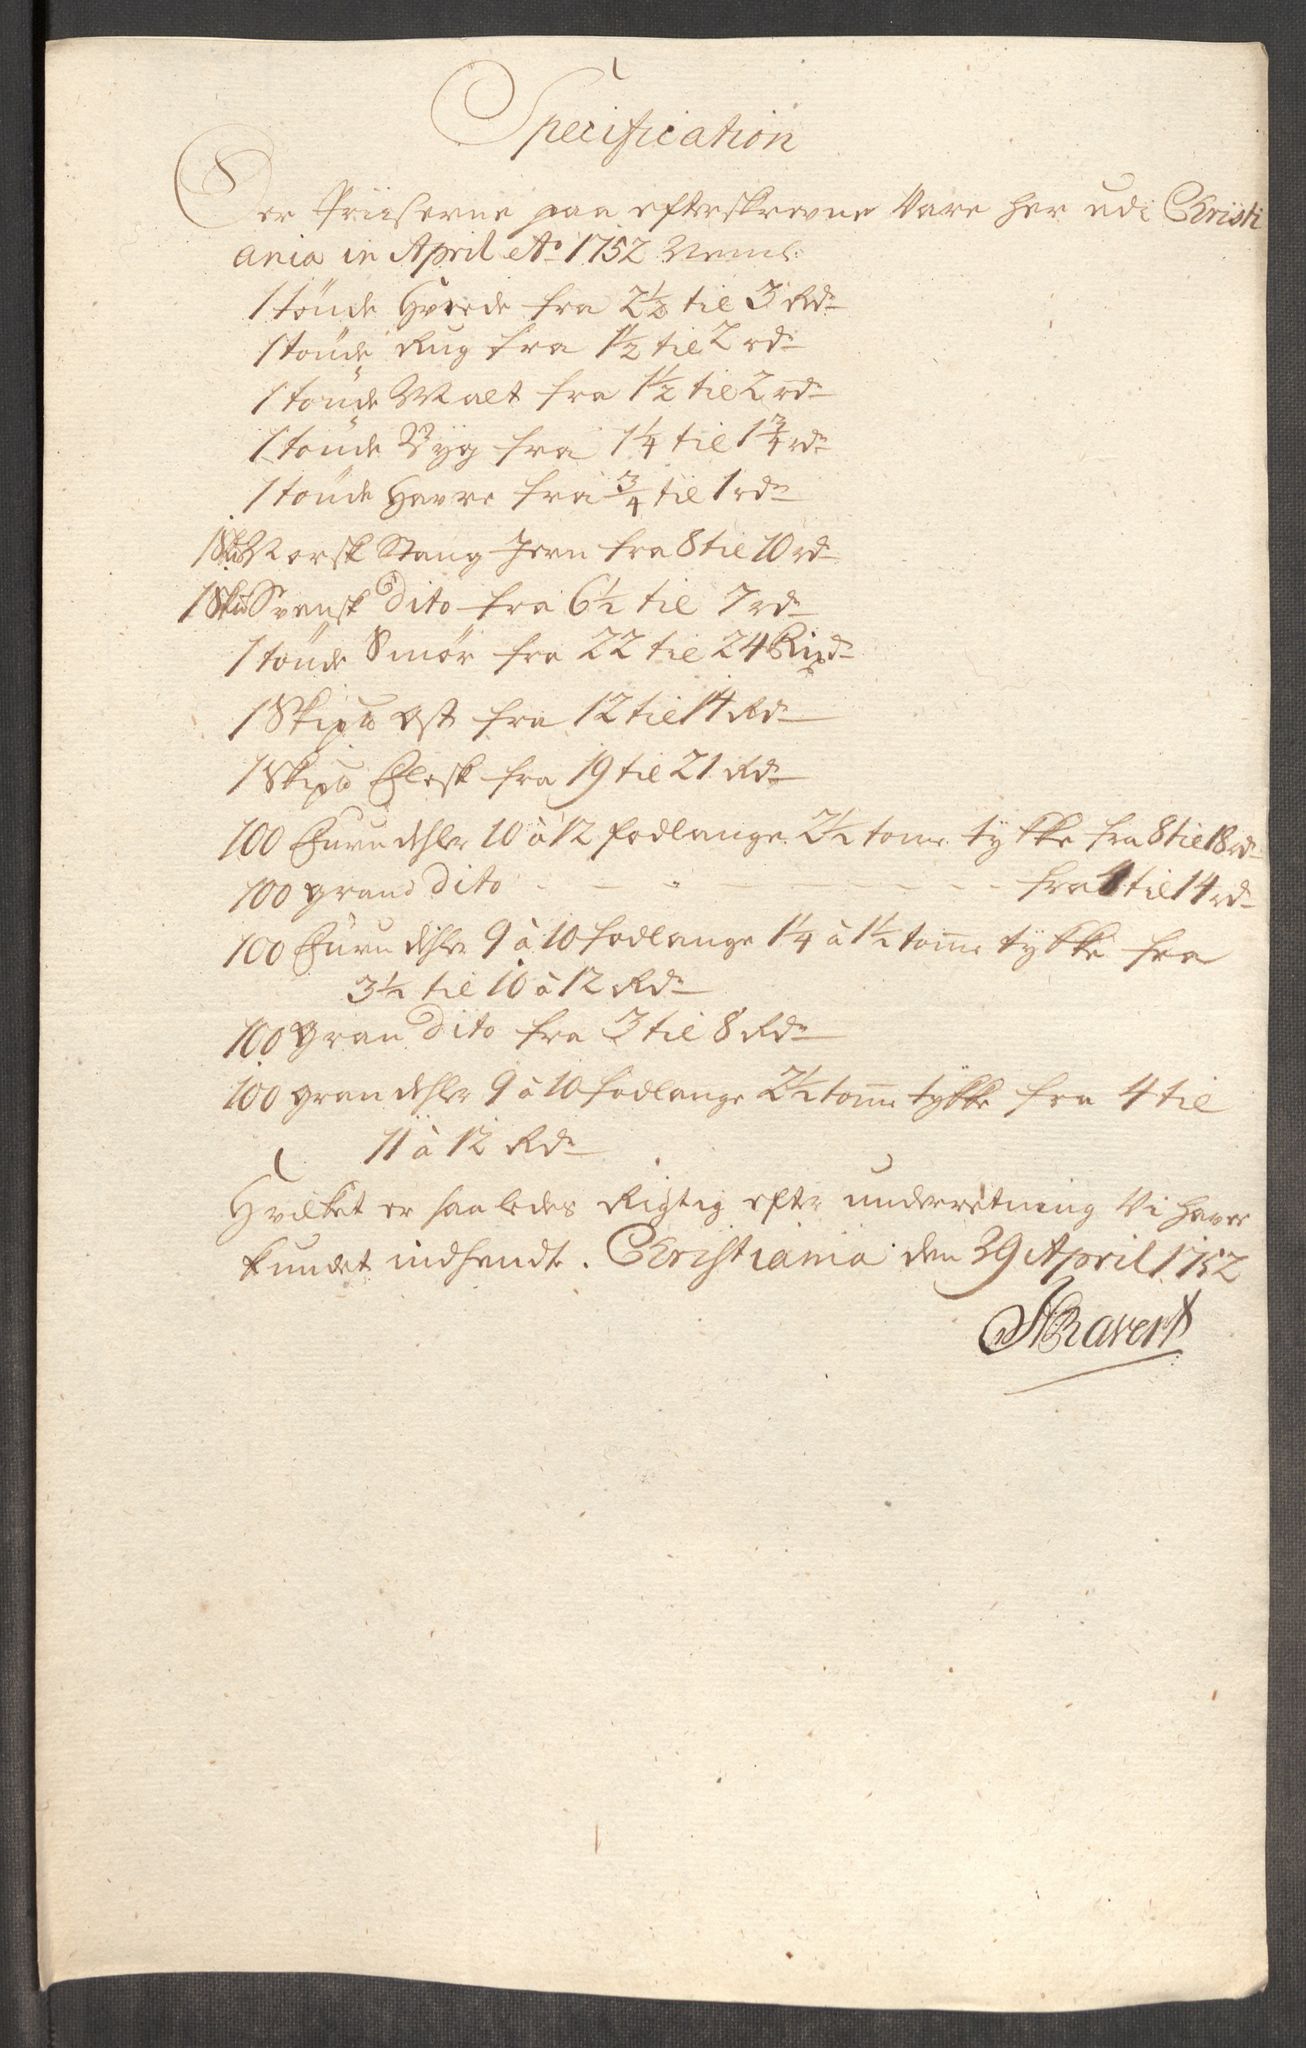 Specification
Der Priiserne paa efterskrevne Vare her udi Christi
ania in April Ao 1752 Neml:
1 tönde Hvede fra 2½ til 3 Rdr
1 tönde Rug fra 1½ til 2 rdr
1 tönde Malt fra 1½ til 2 rdr
1 tönde Byg fra 1¼ til 1¾ rdr
1 tönde Havre fra ¾ til 1 rdr
1 Sk℔ Norsk Stang Jern fra 8 til 10 rdr
1 Sk℔ Svensk Dito fra 6½ til 7 rdr
1 tönde Smör fra 22 til 24 Rixdr
1 Skip℔ Ost fra 12 til 14 Rdr
1 Skip℔ Flesk fra 19 til 21 Rdr
100 Furu dehler 10 à 12 fodlange 2½ tome tykke fra 8 til 18 rdr
100 gran Dito - - - - - - fra til 14 rdr
100 Furu dehler 9 à 10 fodlange 1¼ à 1½ tome tykke fra
3½ til 10 à 12 Rdr
100 gran Dito fra 3 til 8 Rdr
100 gran dehler 9 à 10 fodlange 2½ tome tykke fra 4 til
11 à 12 Rdr
Hvilket er saaledes Rigtig efter underretning Vi haver
kundet indhendte. Christiania den 29 April 1752
Ravert